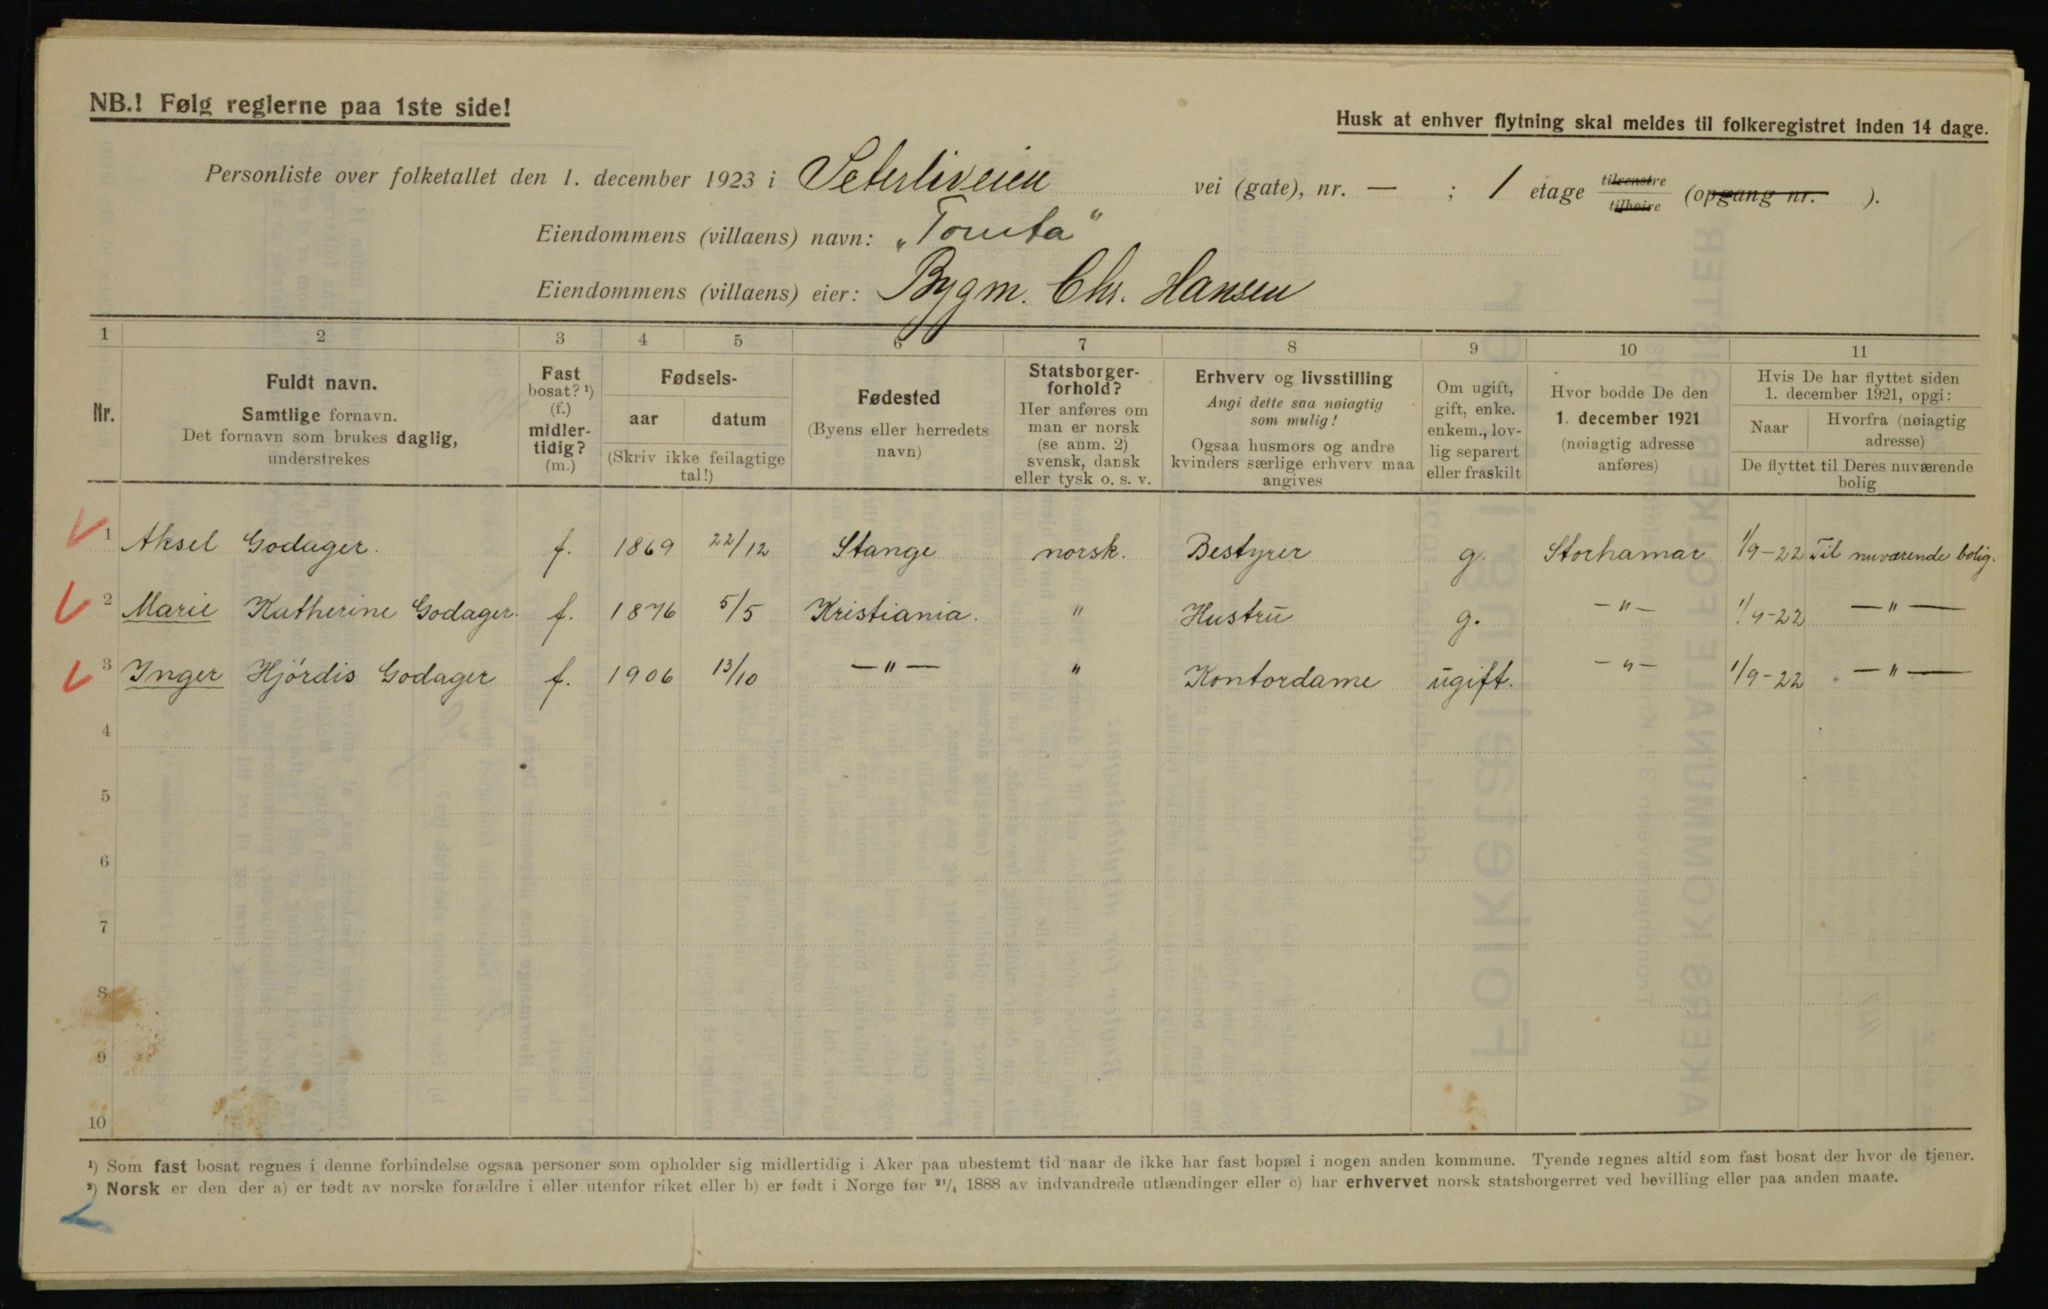 NB.! Følg reglerne paa 1ste side!
Husk at enhver flytning skal meldes til folkeregistret inden 14 dage.
Personliste over folketallet den 1. december 1923 i Seterliveien vei (gate), nr. — ; 1 etage tilvenstre tilhøire (opgang nr. ).
Eiendommens (villaens) navn: „Tomta"
Eiendommens (villaens) eier: Bygm. Chr. Hansen
1 2 3 4 5 6 7 8 9 10 11
Nr.
Fuldt navn.
Samtlige fornavn.
Det fornavn som brukes daglig,
understrekes
Fast
bosat? ¹)
(f.)
midler-
tidig?
(m.)
Fødsels-
aar datum
(Skriv ikke feilagtige
tal!)
Fødested
(Byens eller herredets
navn)
Statsborger-
forhold?
Her anføres om
man er norsk
(se anm. 2)
svensk, dansk
eller tysk o. s. v.
Erhverv og livsstilling
Angi dette saa nøiagtig
som mulig!
Ogsaa husmors og andre
kvinders særlige erhverv maa
angives
Om ugift,
gift, enke.
enkem., lov-
lig separert
eller fraskilt
Hvor bodde De den
1. december 1921
(nøiagtig adresse
anføres)
Hvis De har flyttet siden
1. december 1921, opgi:
Naar Hvorfra (nøiagtig
adresse)
De flyttet til Deres nuværende
bolig
1 Aksel Godager. f. 1869 22/12 Stange norsk. Bestyrer g. Storhamar 1/9-22 Til nuværende bolig.
2 Marie Katherine Godager. f. 1876 5/5 Kristiania. " Hustru g. —"— 1/9-22 —"—
3 Inger Hjørdis Godager f. 1906 13/10 —"— " Kontordame ugift. —"— 1/9-22 —"—
4
5
6
7
8
9
10
¹) Som fast bosat regnes i denne forbindelse ogsaa personer som opholder sig midlertidig i Aker paa ubestemt tid naar de ikke har fast bopæl i nogen anden kommune. Tyende regnes altid som fast bosat der hvor de tjener.
²) Norsk er den der a) er født av norske forældre i eller utenfor riket eller b) er født i Norge før 21/4 1888 av indvandrede utlændinger eller c) har erhvervet norsk statsborgerret ved bevilling eller paa anden maate.